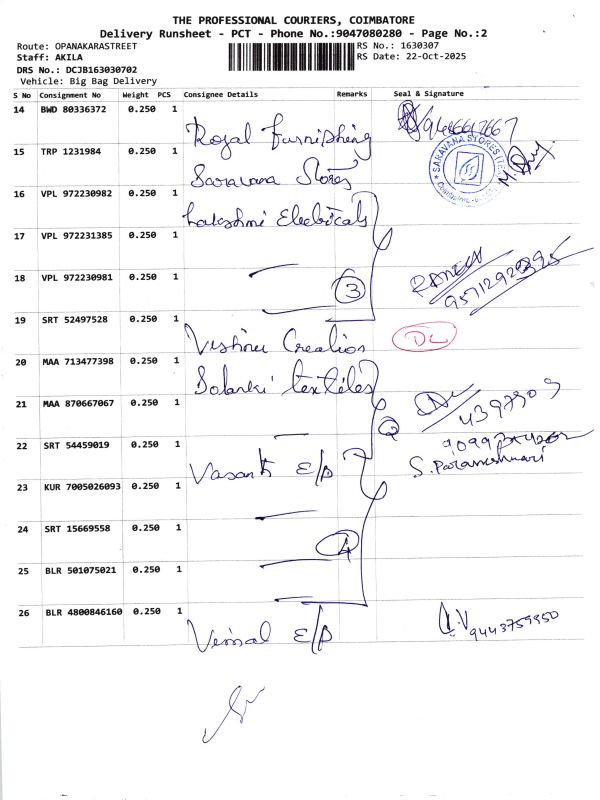 THE PROFESSIONAL COURIERS, COIMBATORE
Delivery Runsheet - PCT - Phone No.:9047080280 - Page No.:2
Route: OPANAKARASTREET
RS No.: 1630307
Staff: AKILA
RS Date: 22-Oct-2025
DRS No.: DCJB163030702
Vehicle: Big Bag Delivery
S No Consignment No Weight PCS Consignee Details Remarks Seal & Signature
14 BWD 80336372 0.250 1 Royal Furnishing
15 TRP 1231984 0.250 1 Saravana Stores
SARAVANA STORES
16 VPL 972230982 0.250 1 Lakshmi Electricals
17 VPL 972231385 0.250 1
18 VPL 972230981 0.250 1 3
19 SRT 52497528 0.250 1 Vishnu Creation DL
20 MAA 713477398 0.250 1 Solanki textiles
21 MAA 870667067 0.250 1 2
22 SRT 54459019 0.250 1 Vasanth E/P S. Parameshwari
23 KUR 7005026093 0.250 1
24 SRT 15669558 0.250 1 4
25 BLR 501075021 0.250 1
26 BLR 4800846160 0.250 1 Vimal E/P 9443759950